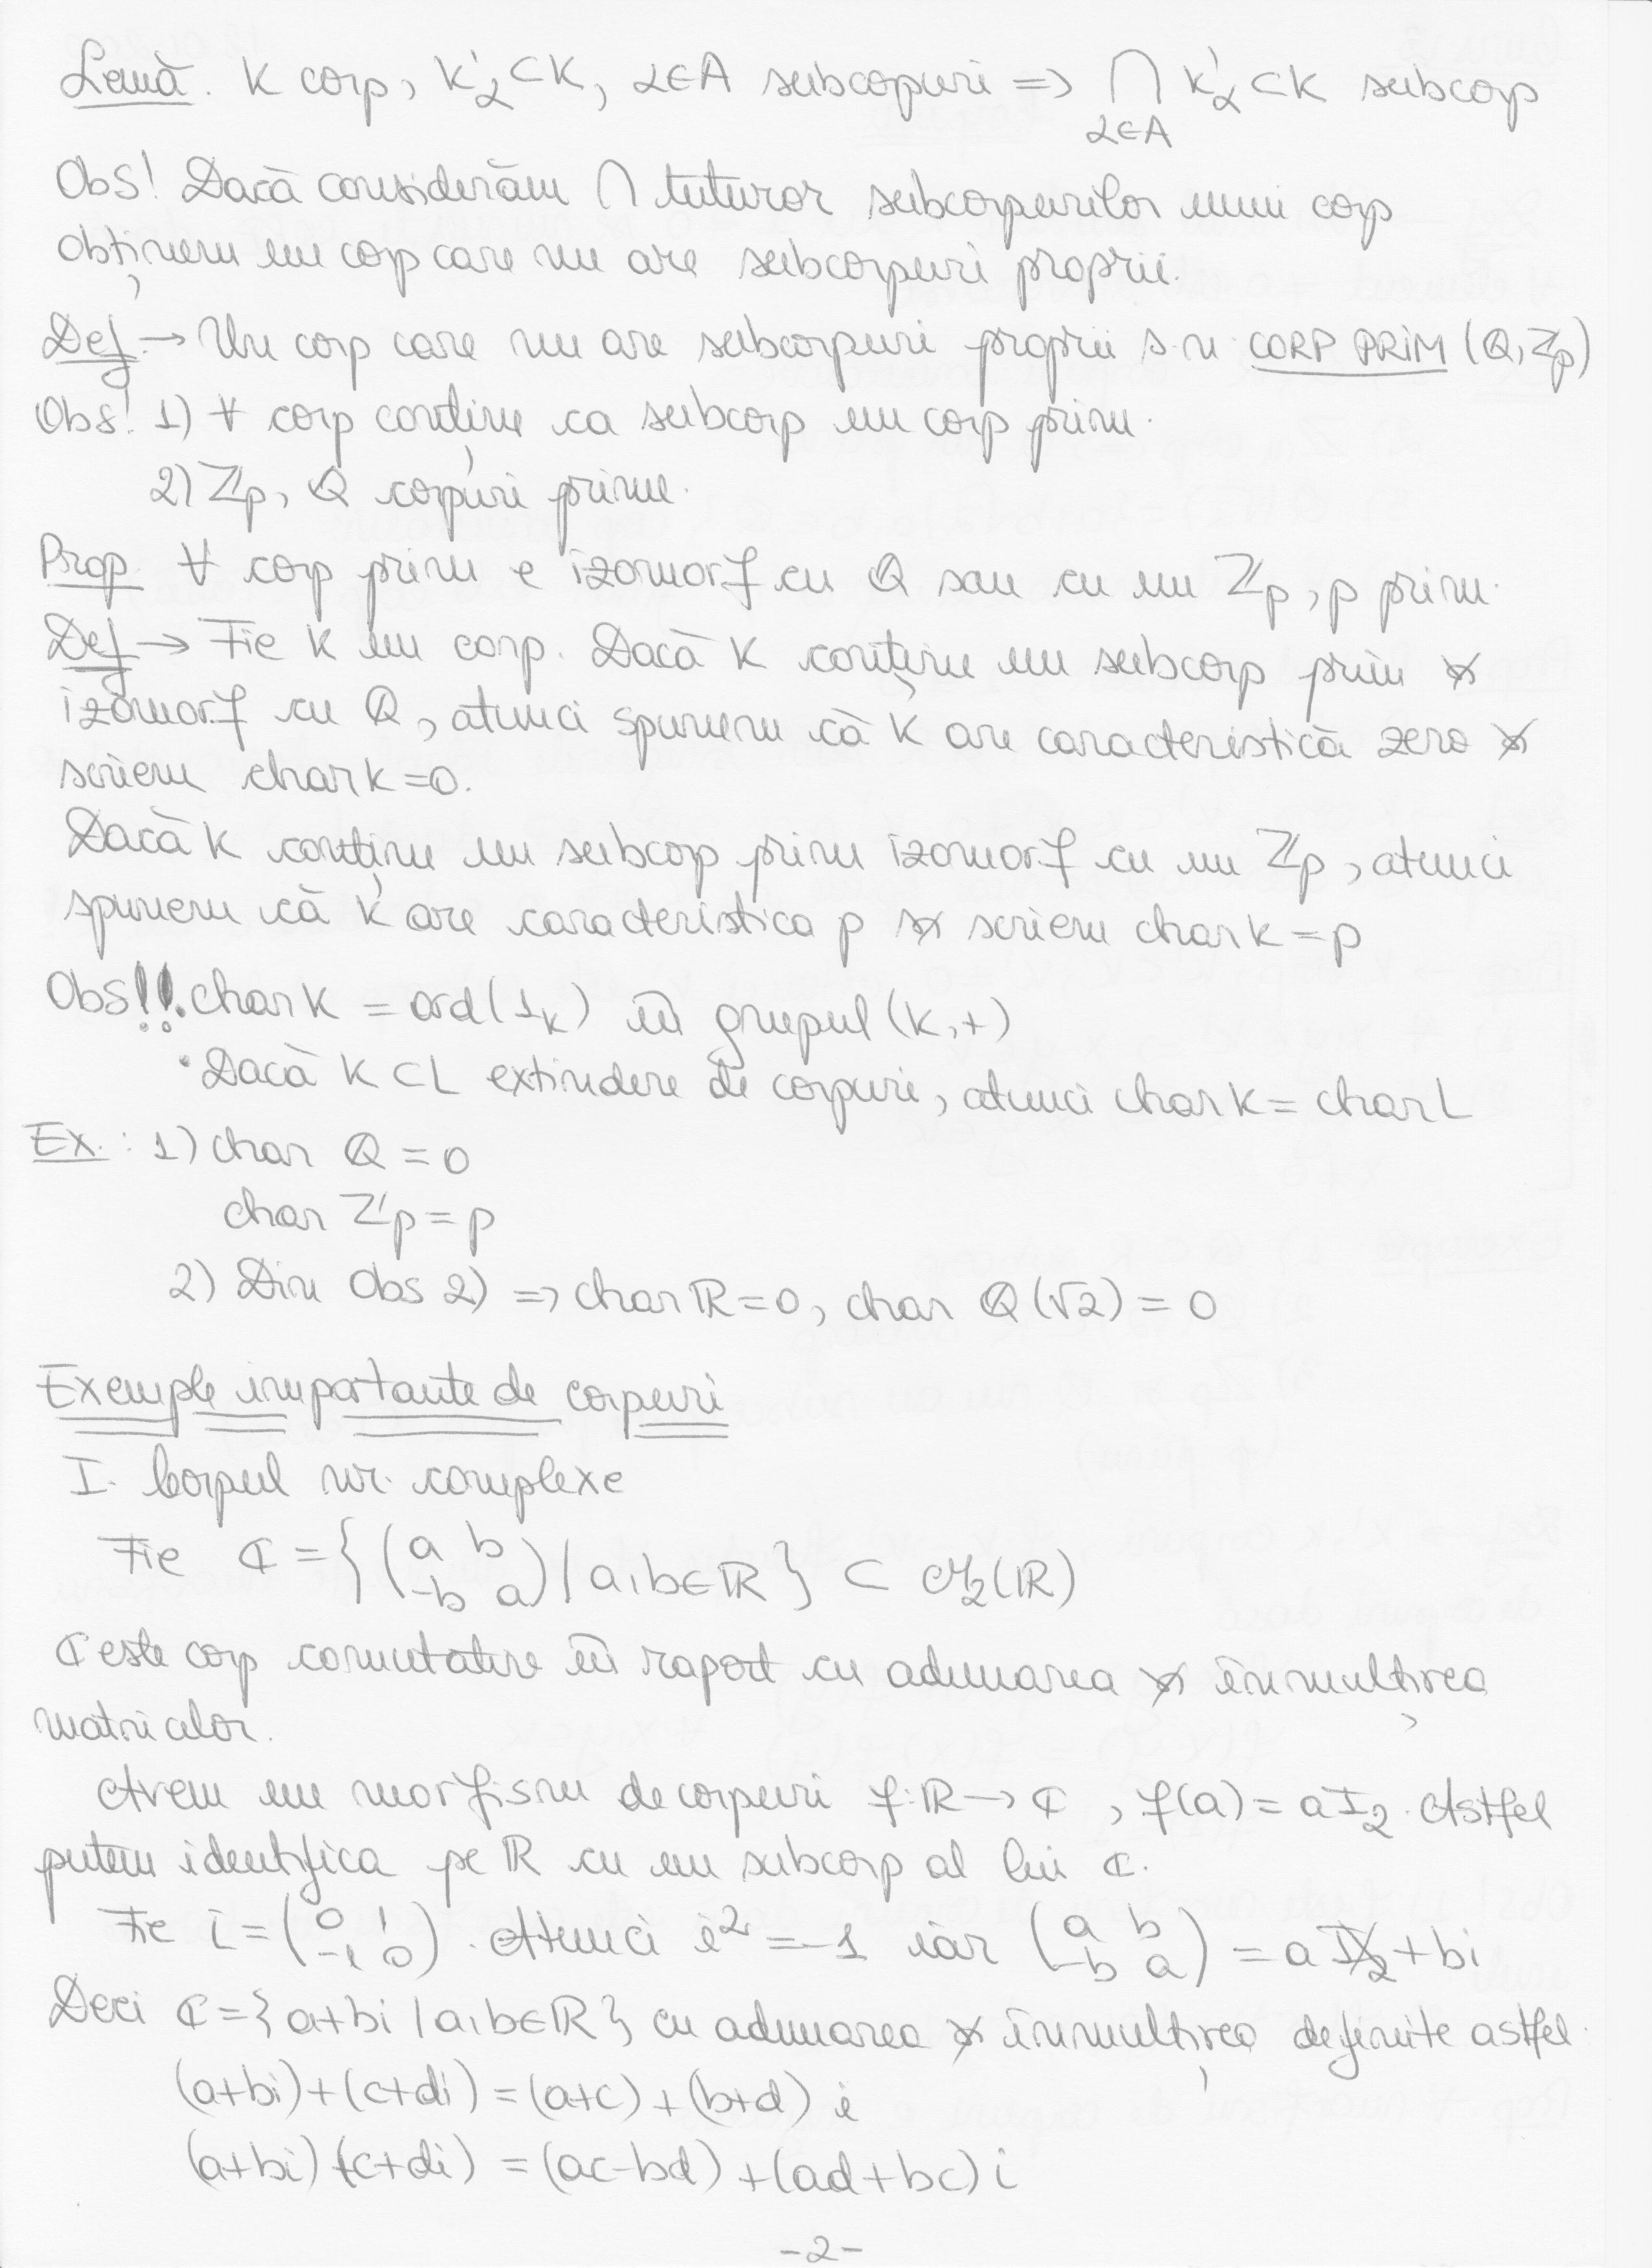 Lemă. K corp, K'α ⊂ K, α∈A subcopuri => ⋂ K'α ⊂ K subcorp
α∈A
Obs! Dacă considerăm ∩ tuturor subcorpurilor unui corp
obținem un corp care nu are subcorpuri proprii.
Def → Un corp care nu are subcorpuri proprii s.n. CORP PRIM (Q, Zp)
Obs! 1) ∀ corp conține ca subcorp un corp prim.
2) Zp, Q corpuri prime.
Prop ∀ corp prim e izomorf cu Q sau cu un Zp, p prim.
Def → Fie K un corp. Dacă K conține un subcorp prim și
izomorf cu Q, atunci spunem că K are caracteristică zero și
scriem char K = 0.
Dacă K conține un subcorp prim izomorf cu un Zp, atunci
spunem că K are caracteristica p și scriem char K = p
Obs!!. char K = ord(1K) în grupul (K,+)
• Dacă K ⊂ L extindere de corpuri, atunci char K = char L
Ex.: 1) char Q = 0
char Zp = p
2) Din Obs 2) => char R = 0, char Q(√2) = 0
Exemple importante de corpuri
I. Corpul nr. complexe
Fie C = { (a b ; -b a) | a,b∈R } ⊂ M2(R)
C este corp comutativ în raport cu adunarea și înmulțirea
matricelor.
Avem un morfism de corpuri f: R → C, f(a) = aI2. Astfel
putem identifica pe R cu un subcorp al lui C.
Fie i = (0 1 ; -1 0). Atunci i² = -1 iar (a b ; -b a) = a I2 + bi
Deci C = { a+bi | a,b∈R } cu adunarea și înmulțirea definite astfel.
(a+bi)+(c+di) = (a+c) + (b+d) i
(a+bi)(c+di) = (ac-bd) + (ad+bc) i
-2-